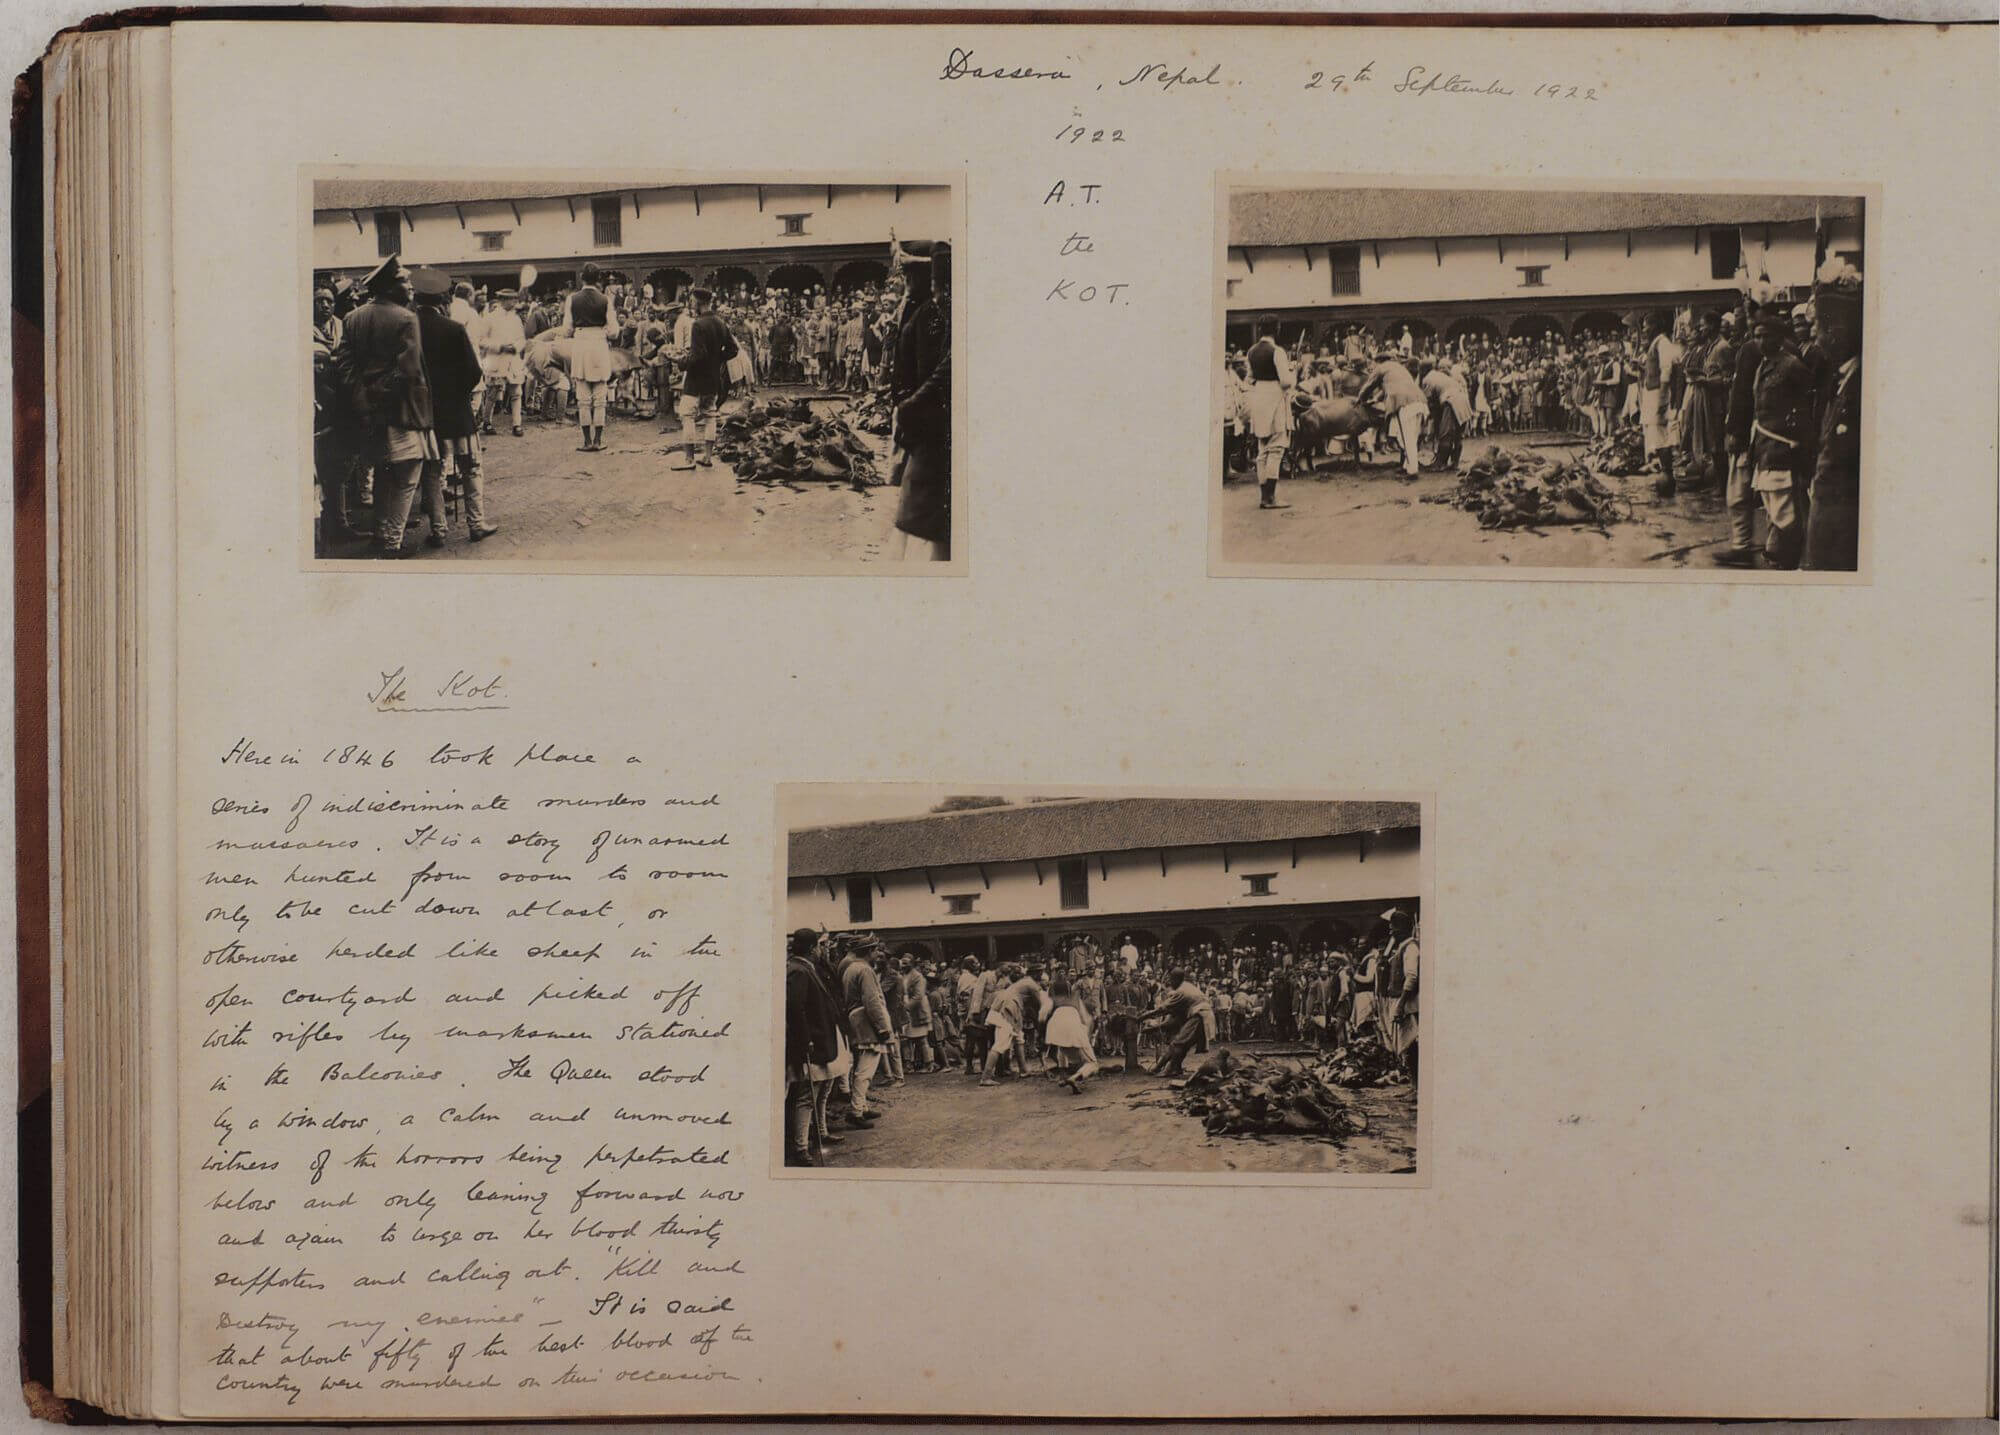 Dassera, Nepal. 29th September 1922
in
1922
A.T.
the
KOT.
The Kot.
Here in 1846 took place a
series of indiscriminate murders and
massacres. It is a story of unarmed
men hunted from room to room
only to be cut down at last, or
otherwise herded like sheep in the
open courtyard and picked off
with rifles by marksmen stationed
in the Balconies. The Queen stood
by a window, a calm and unmoved
witness of the horrors being perpetrated
below and only leaning forward now
and again to urge on her blood thirsty
supporters and calling out. "Kill and
Destroy my enemies" - It is said
that about fifty of the best blood of the
country were murdered on this occasion.